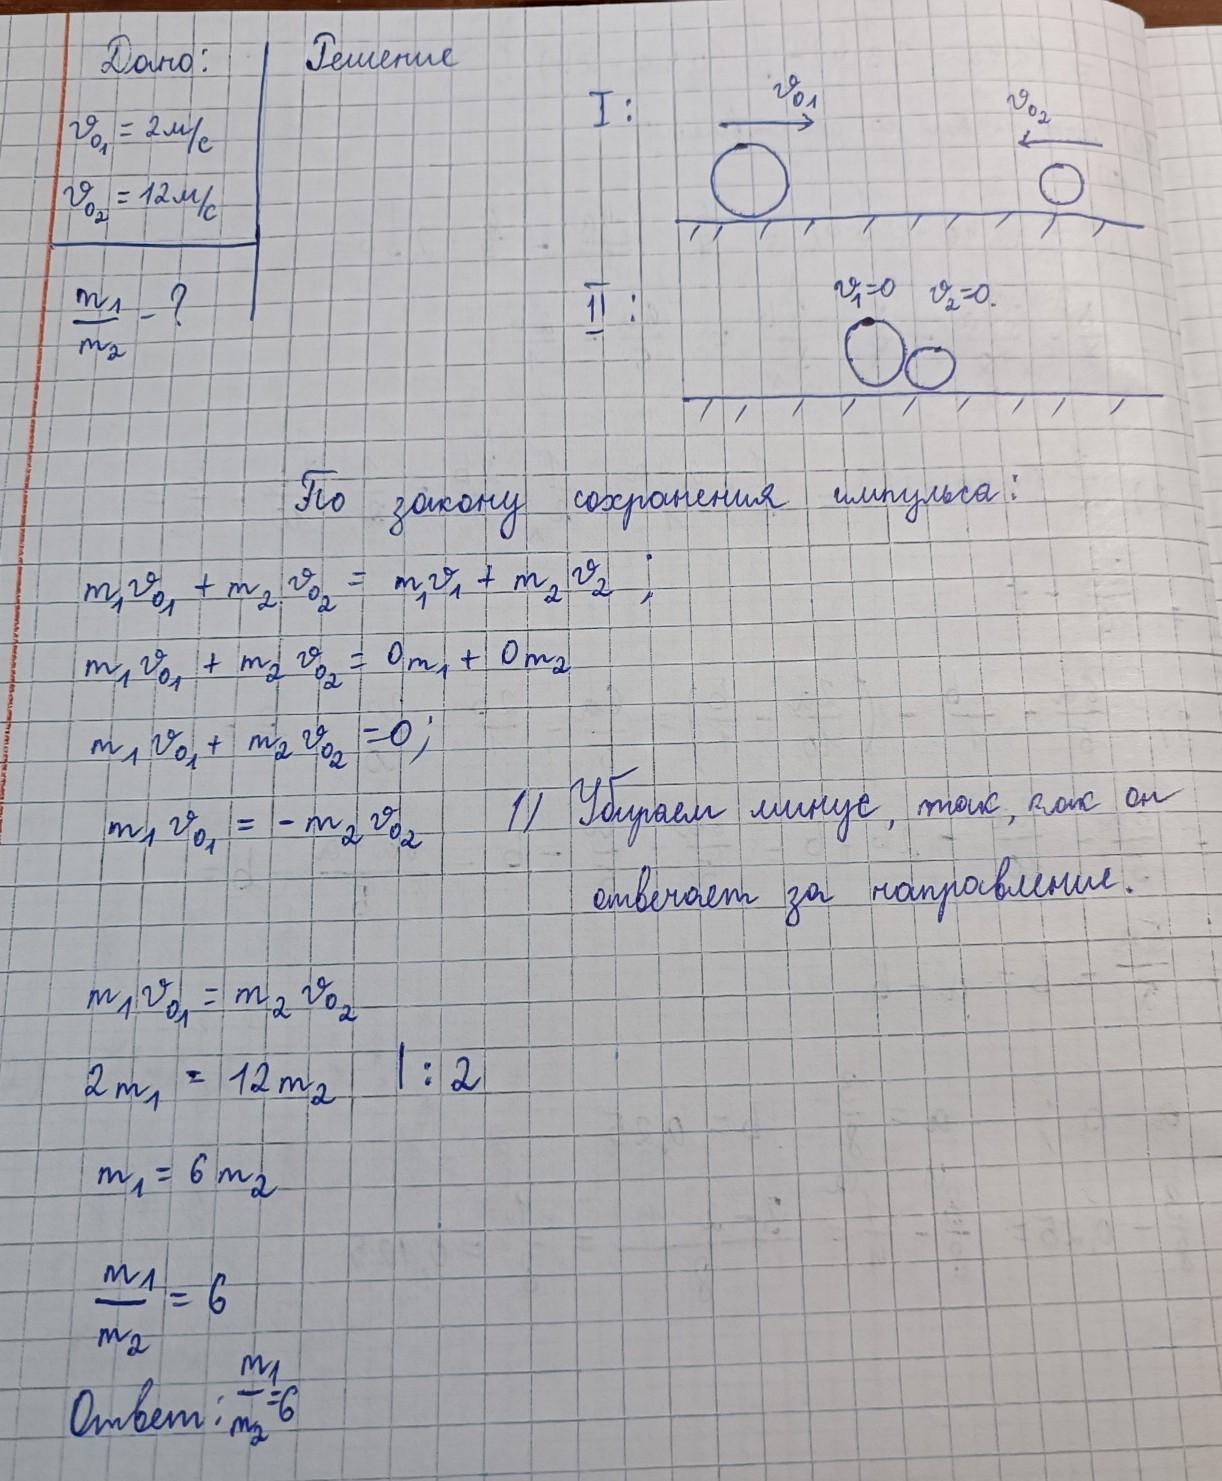 Дано:
Решение
v₀₁ = 2м/с
v₀₂ = 12м/с
m₁/m₂ - ?
I:
v₀₁
v₀₂
II:
v₁=0 v₂=0.
По закону сохранения импульса:
m₁v₀₁ + m₂v₀₂ = m₁v₁ + m₂v₂;
m₁v₀₁ + m₂v₀₂ = 0m₁ + 0m₂
m₁v₀₁ + m₂v₀₂ =0;
m₁v₀₁ = -m₂v₀₂ 1) Убираем минус, так, как он
отвечает за направление.
m₁v₀₁ = m₂v₀₂
2m₁ = 12m₂ |:2
m₁ = 6m₂
m₁/m₂ = 6
Ответ: m₁/m₂=6